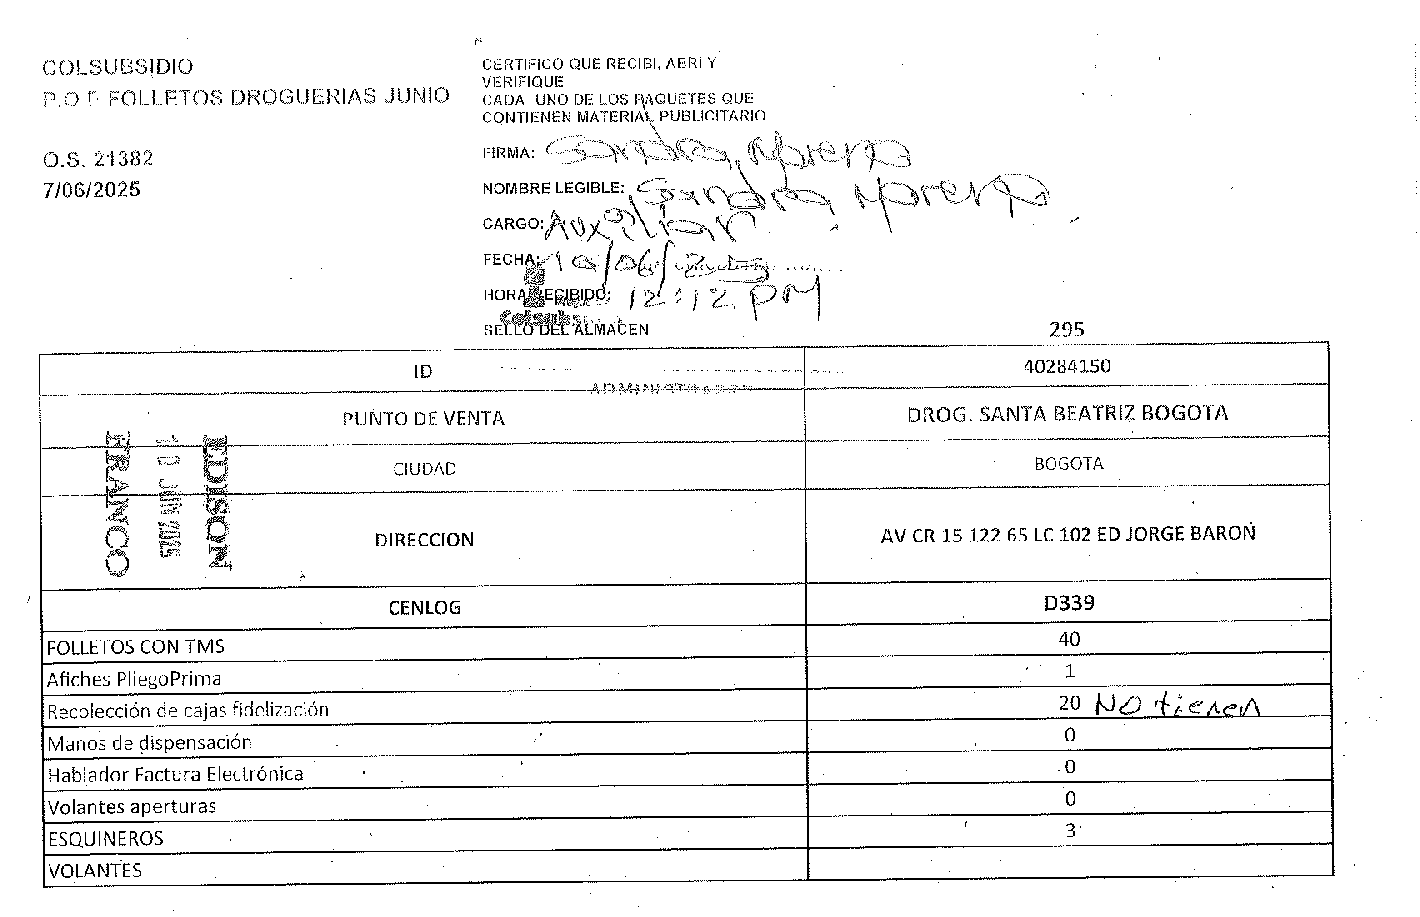 COLSUBSIDIO
P.O.P FOLLETOS DROGUERIAS JUNIO
O.S. 21382
7/06/2025
CERTIFICO QUE RECIBI, ABRI Y
VERIFIQUE
CADA UNO DE LOS PAQUETES QUE
CONTIENEN MATERIAL PUBLICITARIO
FIRMA: Sandra Moreno
NOMBRE LEGIBLE: Sandra Moreno
CARGO: Auxiliar
FECHA: 10/06/2025
HORA RECIBIDO: 12:12 PM
Colsubsidio
SELLO DEL ALMACEN
295
ID 40284150
ADMINISTRADOR
PUNTO DE VENTA DROG. SANTA BEATRIZ BOGOTA
CIUDAD BOGOTA
EDISON
10 JUN 2025
FRANCO
DIRECCION AV CR 15 122 65 LC 102 ED JORGE BARON
CENLOG D339
FOLLETOS CON TMS 40
Afiches PliegoPrima 1
Recolección de cajas fidelización 20 No tienen
Manos de dispensación 0
Hablador Factura Electrónica 0
Volantes aperturas 0
ESQUINEROS 3
VOLANTES